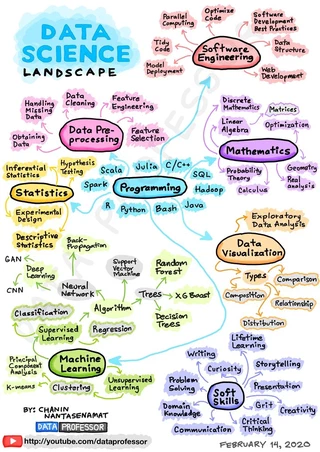 DATA
SCIENCE
LANDSCAPE
Parallel
Computing
Optimize
Code
Software
Development
Best Practices
Tidy
Code
Data
Structure
Model
Deployment
Web
Development
Software
Engineering
Handling
Missing
Data
Data
Cleaning
Feature
Engineering
Obtaining
Data
Feature
Selection
Data Pre-
processing
Discrete
Mathematics
Matrices
Linear
Algebra
Optimization
Mathematics
Probability
Theory
Calculus
Geometry
Real
analysis
Inferential
Statistics
Hypothesis
Testing
Statistics
Experimental
Design
Descriptive
Statistics
Scala
Julia
C/C++
SQL
Spark
Programming
Hadoop
R
Python
Bash
Java
Exploratory
Data Analysis
Data
Visualization
Types
Comparison
Composition
Relationship
Distribution
Back-
Propagation
GAN
Deep
Learning
CNN
Neural
Network
Support
Vector
Machine
Random
Forest
Trees
XGBoost
Decision
Trees
Algorithm
Classification
Regression
Supervised
Learning
Principal
Component
Analysis
Machine
Learning
K-means
Clustering
Unsupervised
Learning
Lifetime
Learning
Writing
Curiosity
Storytelling
Problem
Solving
Presentation
Soft
Skills
Domain
Knowledge
Grit
Creativity
Communication
Critical
Thinking
BY: CHANIN
NANTASENAMAT
DATA PROFESSOR
http://youtube.com/dataprofessor
FEBRUARY 14, 2020